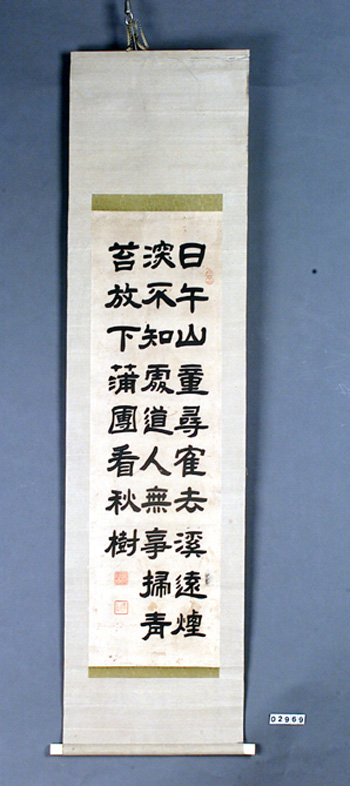 日午山童尋隺去溪遠煙
深不知處道人無事掃青
苔放下蒲團看秋樹
02969